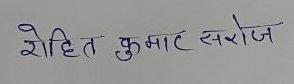 रोहित कुमार सरोज